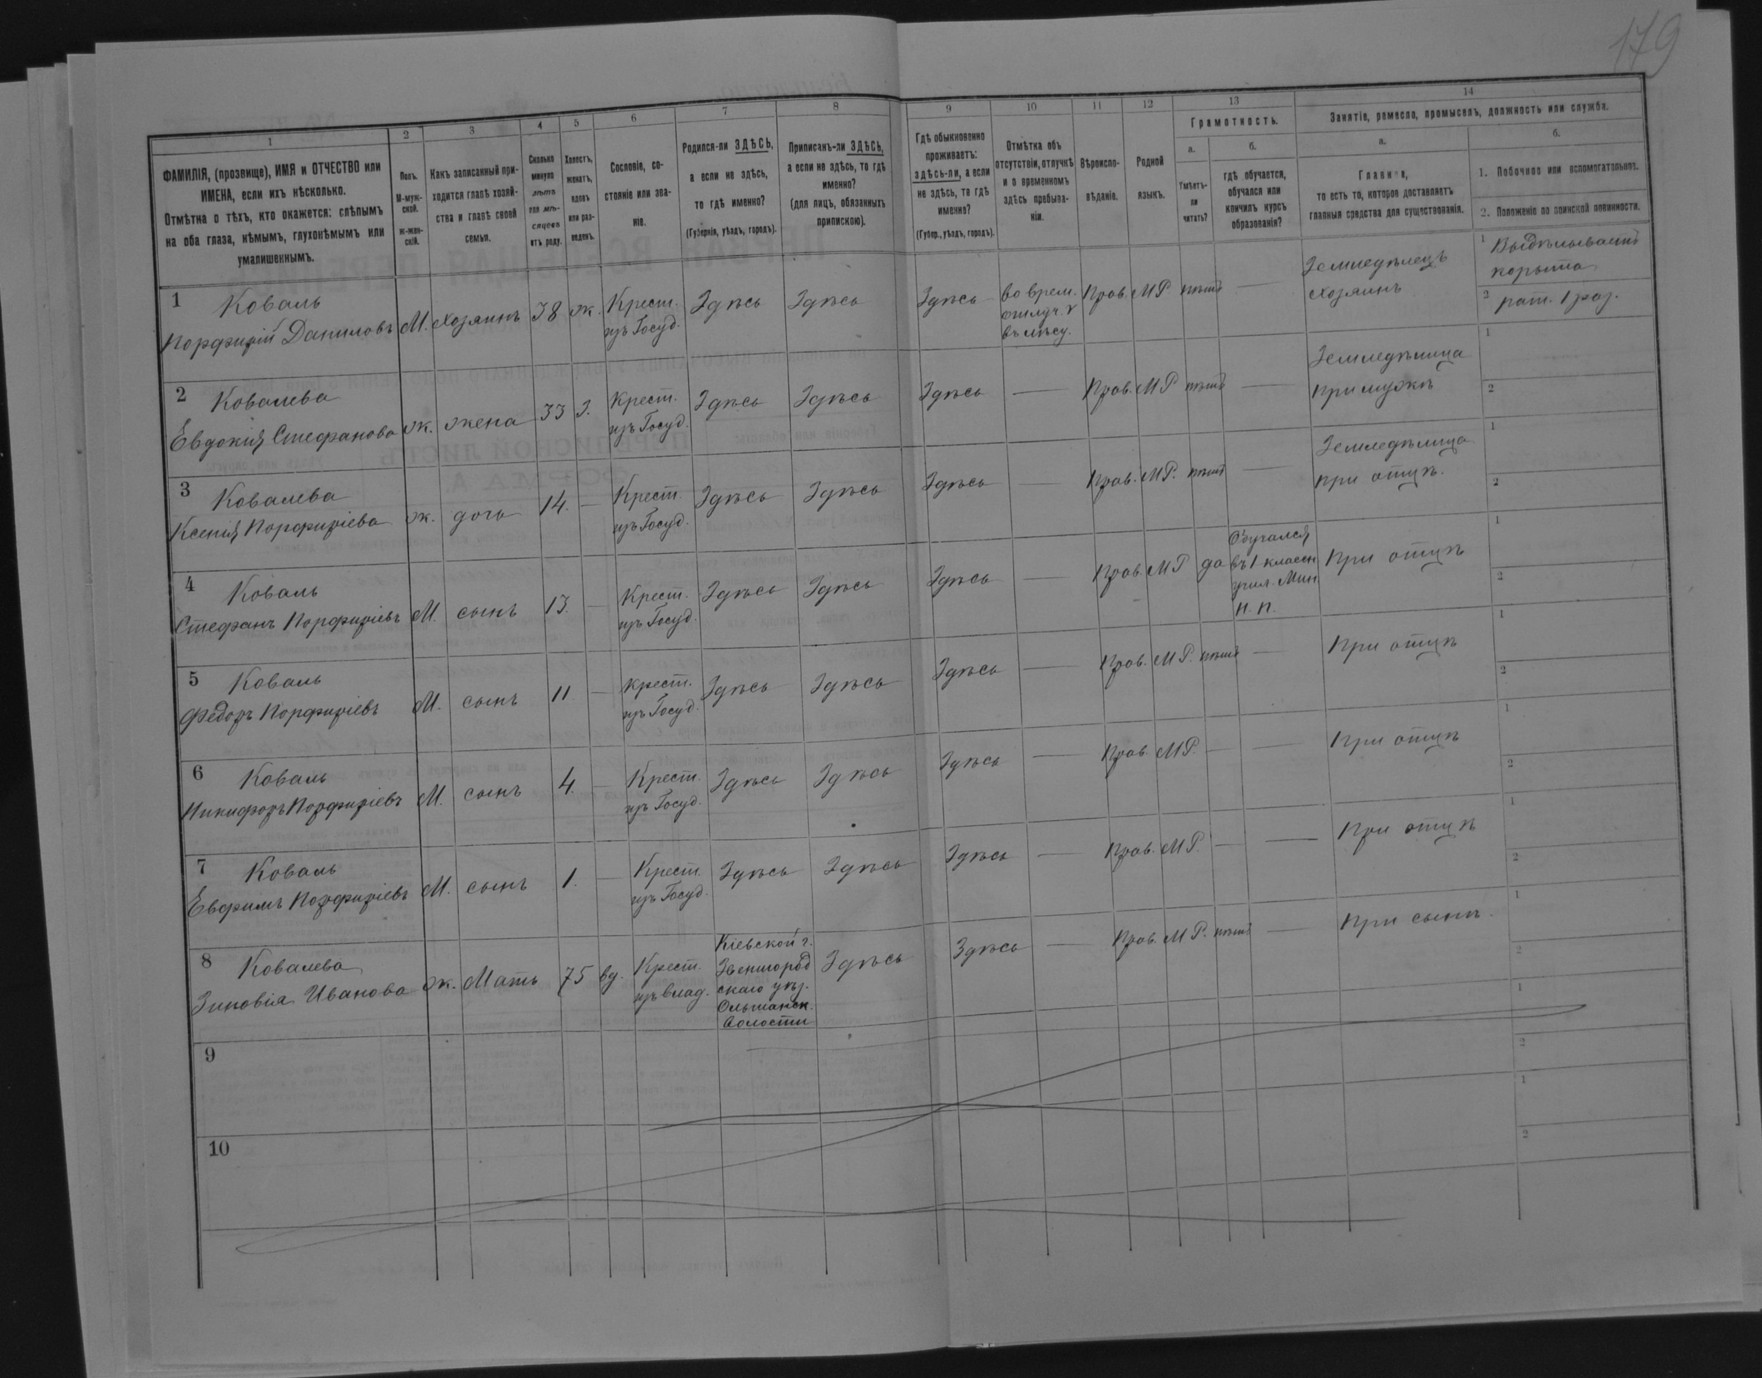 179
1
2
3
4
5
6
7
8
9
10
11
12
13
14
ФАМИЛІЯ, (прозвище), ИМЯ и ОТЧЕСТВО или
ИМЕНА, если ихъ нѣсколько.
Отмѣтка о тѣхъ, кто окажется: слѣпымъ
на оба глаза, нѣмымъ, глухонѣмымъ или
умалишеннымъ.
Полъ.
М-муж-
ской.
Ж-жен-
скій.
Какъ записанный при-
ходится главѣ хозяй-
ства и главѣ своей
семьи.
Сколько
минуло
лѣтъ
или мѣ-
сяцевъ
отъ роду.
Холостъ,
женатъ,
вдовъ
или раз-
веденъ.
Сословіе, со-
стояніе или зва-
ніе.
Родился-ли ЗДѢСЬ,
а если не здѣсь,
то гдѣ именно?
(Губернія, уѣздъ, городъ).
Приписанъ-ли ЗДѢСЬ,
а если не здѣсь, то гдѣ
именно?
(для лицъ, обязанныхъ
припискою).
Гдѣ обыкновенно
проживаетъ:
здѣсь-ли, а если
не здѣсь, то гдѣ
именно?
(Губер., уѣздъ, городъ).
Отмѣтка объ
отсутствіи, отлучкѣ
и о временномъ
здѣсь пребыва-
ніи.
Вѣроиспо-
вѣданіе.
Родной
языкъ.
Грамотность.
а.
Умѣетъ-
ли
читать?
б.
гдѣ обучается,
обучался или
кончилъ курсъ
образованія?
Занятіе, ремесло, промыселъ, должность или служба.
а.
Главное,
то есть то, которое доставляетъ
главныя средства для существованія.
б.
1. Побочное или вспомогательное.
2. Положеніе по воинской повинности.
1 Коваль
Порфирій Даниловъ М. хозяинъ 38 ж. Крест. изъ Госуд. Здѣсь Здѣсь Здѣсь во врем. отлуч. въ лѣсу. Прав. МР нѣтъ — Земледѣлецъ хозяинъ 1 Выдѣлываетъ корыта 2 рат. 1 раз.
2 Ковалева
Евдокія Стефанова ж. жена 33 з. Крест. изъ Госуд. Здѣсь Здѣсь Здѣсь — Прав. МР нѣтъ — Земледѣлица при мужѣ 1 2
3 Ковалева
Ксенія Порфиріева ж. дочь 14. — Крест. изъ Госуд. Здѣсь Здѣсь Здѣсь — Прав. МР. нѣтъ — Земледѣлица при отцѣ. 1 2
4 Коваль
Стефанъ Порфиріевъ М. сынъ 13. — Крест. изъ Госуд. Здѣсь Здѣсь Здѣсь — Прав. МР да Обучался въ 1 класн учил. Мин Н. П. При отцѣ 1 2
5 Коваль
Федоръ Порфиріевъ М. сынъ 11 — Крест. изъ Госуд. Здѣсь Здѣсь Здѣсь — Прав. МР. нѣтъ — При отцѣ 1 2
6 Коваль
Никифоръ Порфиріевъ М. сынъ 4. — Крест. изъ Госуд. Здѣсь Здѣсь Здѣсь — Прав МР. — — При отцѣ 1 2
7 Коваль
Евфимъ Порфиріевъ М. сынъ 1. — Крест. изъ Госуд. Здѣсь Здѣсь Здѣсь — Прав. МР. — — При отцѣ 1 2
8 Ковалева
Зиновія Иванова ж. Мать 75 вд. Крест. изъ влад. Кіевской г. Звенигород скаго уѣз. Ольшанск. волости Здѣсь Здѣсь — Прав. МР. нѣтъ — При сынѣ. 1 2
9 1 2
10 1 2